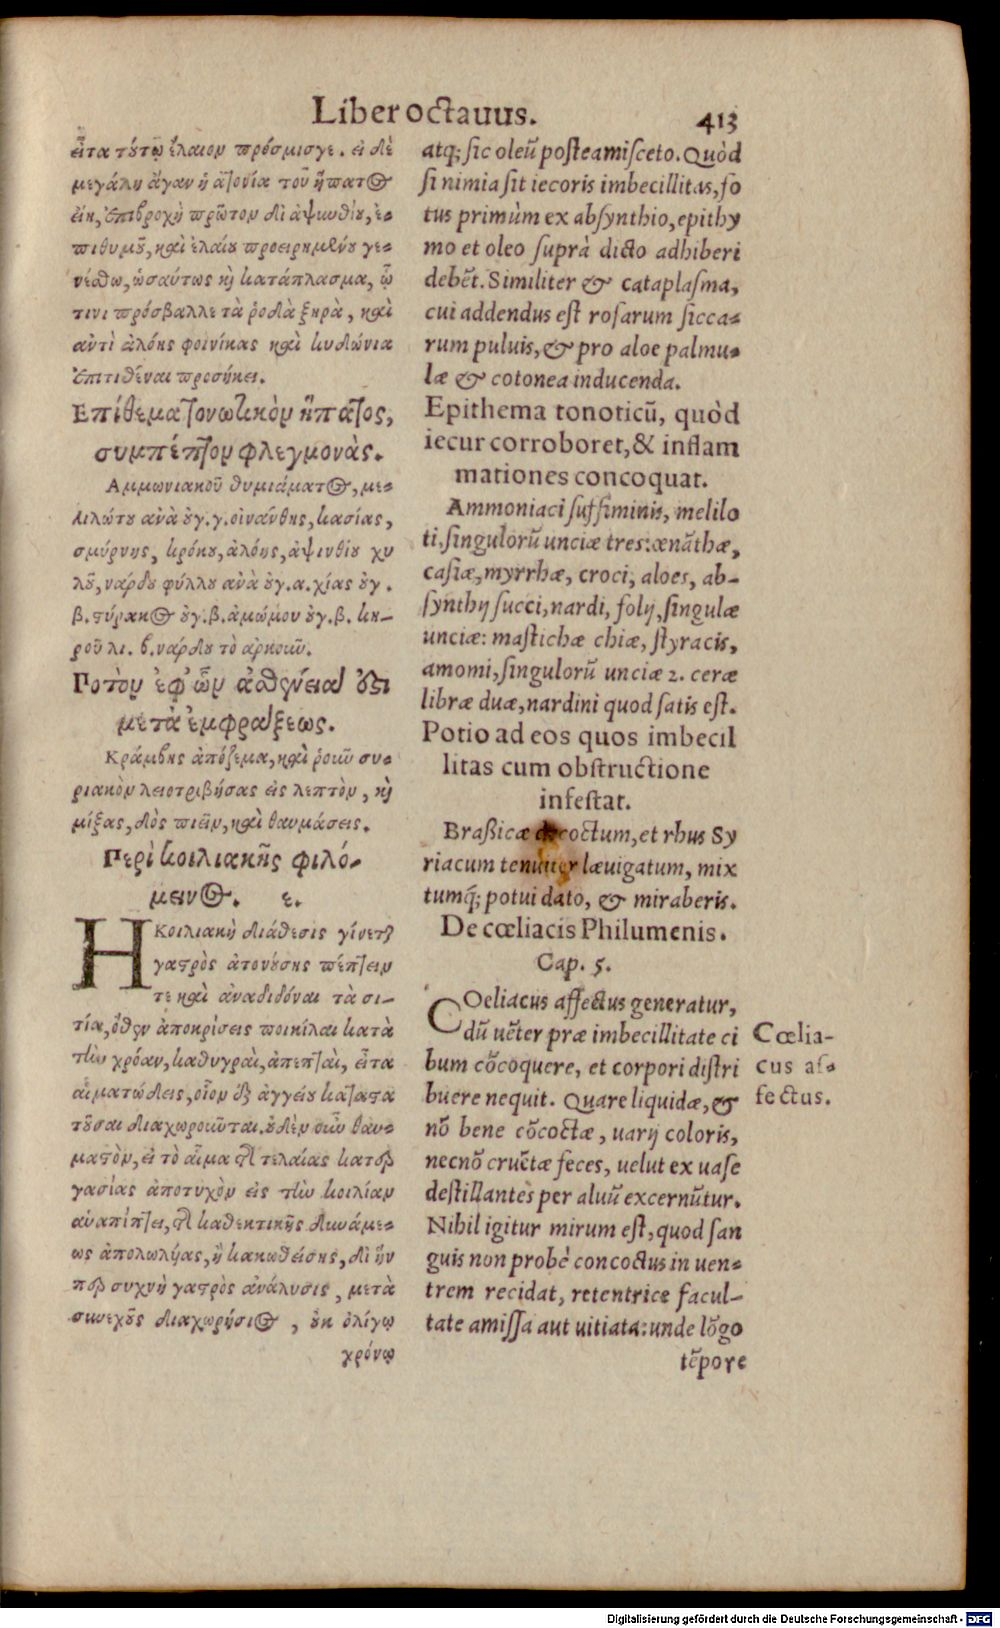 Liber octauus. 413
εἶτα τούτῳ ἔλαιον πρόσμισγε. εἰ δὲ
μεγάλη ἄγαν ἡ ἀτονία τοῦ ἥπατος
εἴη, ἐπιβροχὴ πρῶτον δι' ἀψινθίου, ἐ-
πιθύμου, καὶ ἐλαίου προειρημένου γε-
νέσθω, ὡσαύτως καὶ κατάπλασμα, ᾧ
τινι πρόσβαλλε τὰ ῥοδὰ ξηρὰ, καὶ
ἀντὶ ἀλόης φοινίκας καὶ κυδώνια
ἐπιτιθέναι προσήκει.
Ἐπίθεμα τονωτικὸν ἥπατος,
συμπέπτον φλεγμονὰς.
Ἀμμωνιακοῦ θυμιάματος, με-
λιλώτου ἀνὰ οὐγ. γ. οἰνάνθης, κασίας,
σμύρνης, κρόκου, ἀλόης, ἀψινθίου χυ
λοῦ, νάρδου φύλλου ἀνὰ οὐγ. α. χίας οὐγ.
β. στύρακος οὐγ. β. ἀμώμου οὐγ. β. κη-
ροῦ λι. β. νάρδου τὸ ἀρκοῦν.
Ποτὸν ἐφ' ὧν ἀσθένεια ἐστι
μετὰ ἐμφράξεως.
Κράμβης ἀπόζεμα, καὶ ῥοῦν συ-
ριακὸν λειοτριβήσας εἰς λεπτὸν, καὶ
μίξας, δὸς πιεῖν, καὶ θαυμάσεις.
Περὶ κοιλιακῆς φιλό-
μενος. ε.
Η Κοιλιακὴ διάθεσις γίνεται
γαστρὸς ἀτονούσης πέπτειν
τε καὶ ἀναδιδόναι τὰ σι-
τία, ὅθεν ἀποκρίσεις ποικίλαι κατὰ
τὴν χρόαν, κάθυγραι, ἄπεπται, εἶτα
αἱματώδεις, οἷον ἐξ ἀγγείου κατὰ στα
τοῦσαι διαχωροῦνται. οὐδὲν οὖν θαυ-
μαστὸν, εἰ τὸ αἷμα τῆς τελαίας κατερ
γασίας ἀποτυχὸν εἰς τὴν κοιλίαν
ἀναπίπτει, τῆς καθεκτικῆς δυνάμε-
ως ἀπολωλυίας, ἢ κακωθείσης, δι' ἣν
περ συχνὴ γαστρὸς ἀνάλυσις, μετὰ
συνεχοῦς διαχωρήσιος, οὐκ ὀλίγῳ
χρόνῳ
atq; sic oleũ postea misceto. Quòd
si nimia sit iecoris imbecillitas, fo
tus primùm ex absynthio, epithy
mo et oleo suprà dicto adhiberi
debẽt. Similiter & cataplasma,
cui addendus est rosarum sicca-
rum puluis, & pro aloe palmu-
læ & cotonea inducenda.
Epithema tonoticũ, quòd
iecur corroboret, & inflam
mationes concoquat.
Ammoniaci suffiminis, melilo
ti, singulorũ unciæ tres: œnãthæ,
casiæ, myrrhæ, croci, aloes, ab-
synthij succi, nardi, folij, singulæ
unciæ: mastichæ chiæ, styracis,
amomi, singulorũ unciæ 2. ceræ
libræ duæ, nardini quod satis est.
Potio ad eos quos imbecil
litas cum obstructione
infestat.
Braßicæ decoctum, et rhus Sy
riacum tenuiter læuigatum, mix
tumq́; potui dato, & miraberis.
De cœliacis Philumenis.
Cap. 5.
COeliacus affectus generatur,
dũ uẽter præ imbecillitate ci
bum cõcoquere, et corpori distri
buere nequit. Quare liquidæ, &
nõ bene cõcoctæ, uarij coloris,
necnõ cruẽtæ feces, uelut ex uase
destillantes per aluũ excernũtur.
Nihil igitur mirum est, quod san
guis non probè concoctus in uen-
trem recidat, retentrice facul-
tate amissa aut uitiata: unde lõgo
tẽpore
Cœlia-
cus af-
fectus.
Digitalisierung gefördert durch die Deutsche Forschungsgemeinschaft - DFG